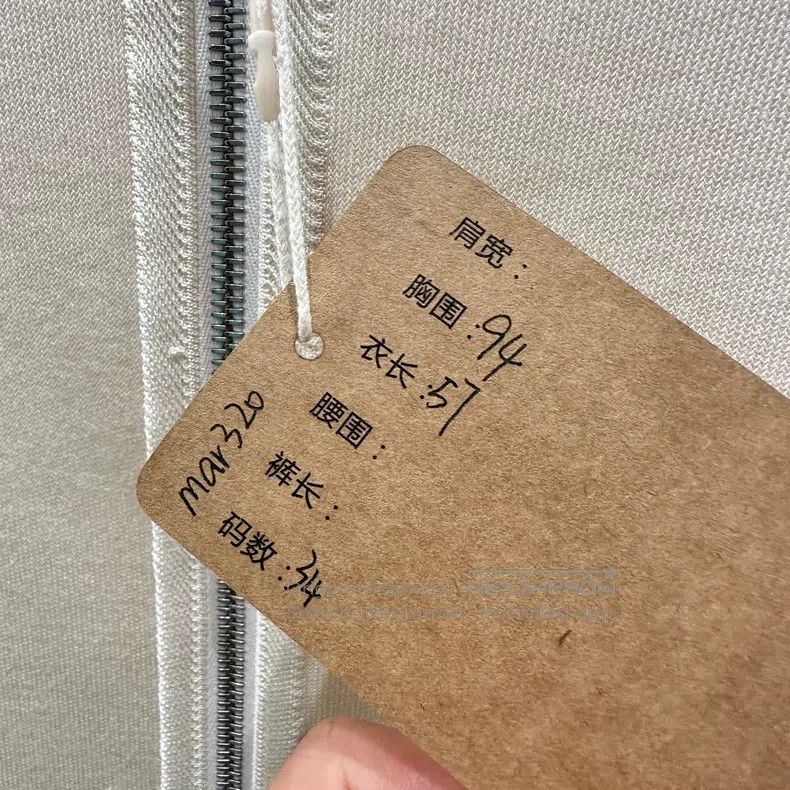 肩宽：
胸围：94
衣长：57
腰围：
裤长：
码数：34
mar320